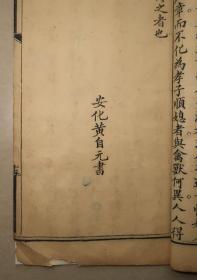 章而不化為孝子順媳者與禽獸何異人人得
之者也
安化黃自元書